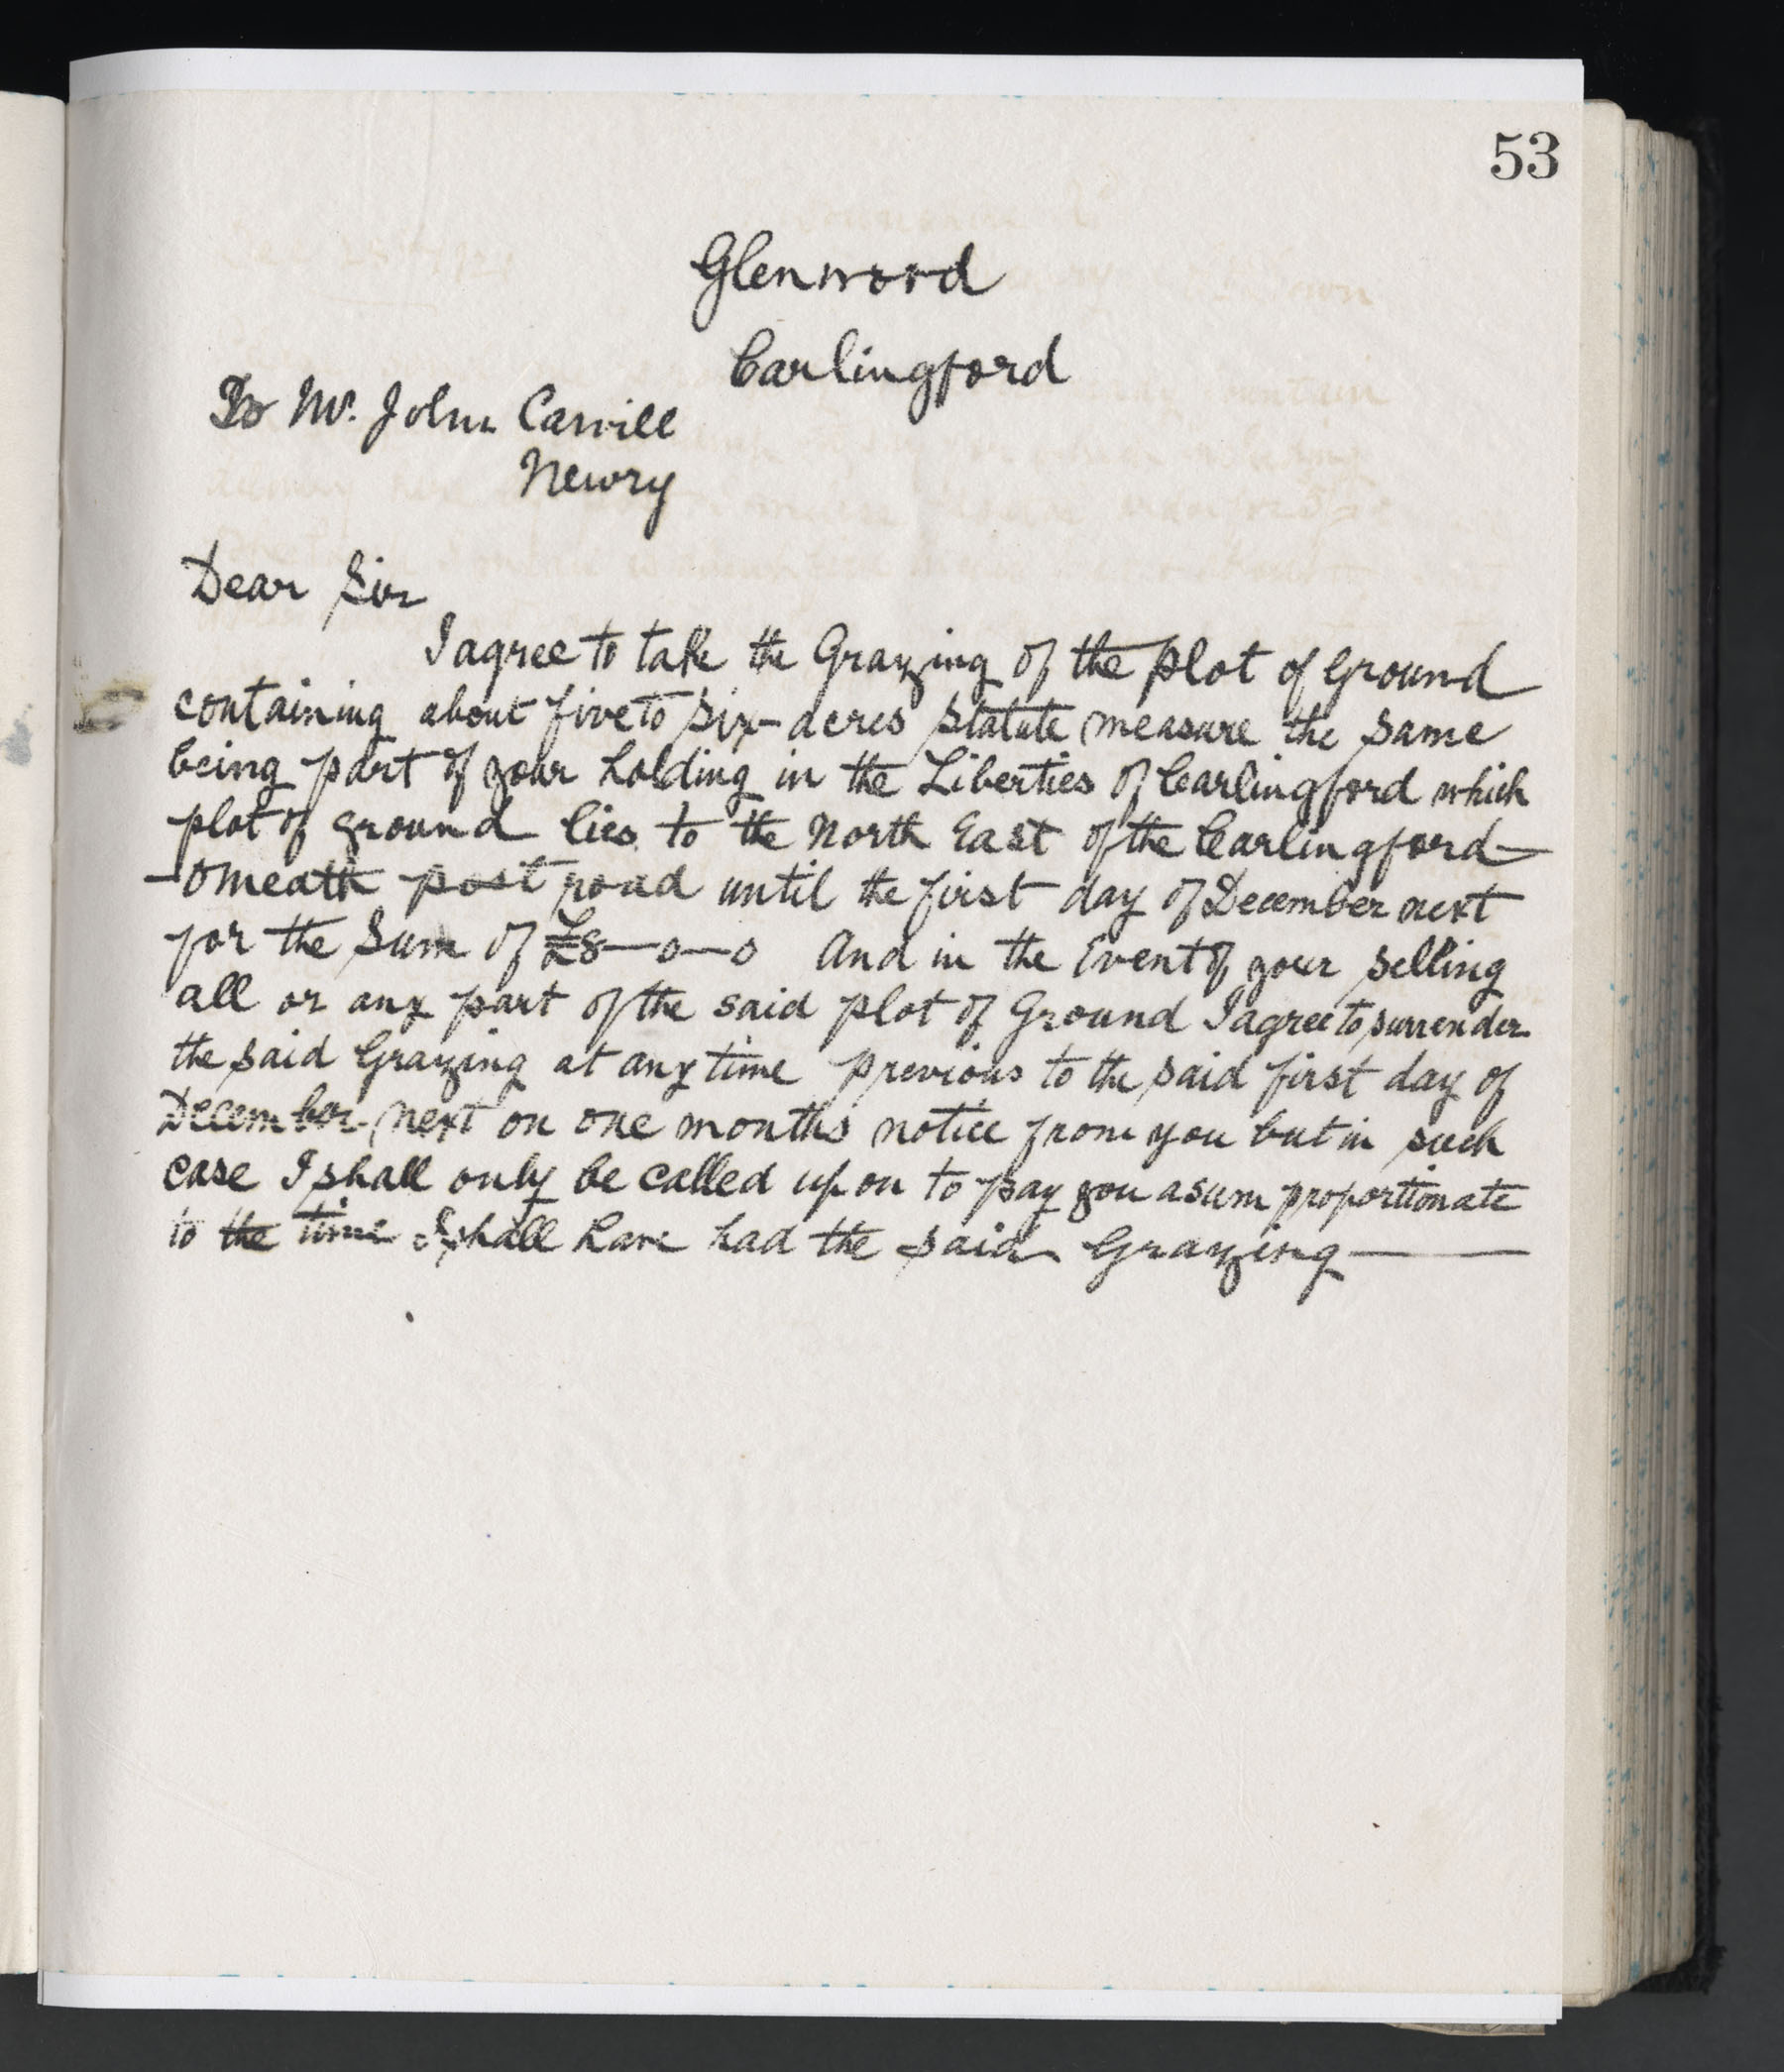 53
Glenwood
Carlingford
To Mr. John Carvill
Newry
Dear Sir
I agree to take the Grazing of the plot of Ground
containing about five to six acres statute measure the same
being part of your holding in the Liberties of Carlingford which
plot of ground lies to the North East of the Carlingford
-Omeath post road until the first day of December next
for the Sum of £8-0-0 And in the Event of your selling
all or any part of the said plot of Ground I agree to surrender
the said Grazing at any time previous to the said first day of
December next on one months notice from you but in such
case I shall only be called upon to pay you a sum proportionate
to the time I shall have had the said Grazing